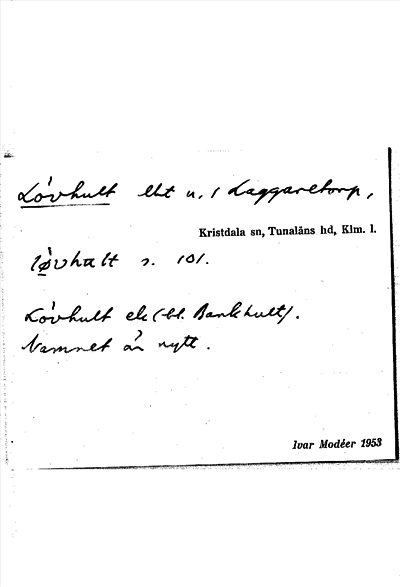 Lövhult lht u. / Laggaretorp,
Kristdala sn, Tunaläns hd, Klm. l.
løvhult s. 101.
Lövhult ek (bl. Bankhult).
Namnet är nytt.
Ivar Modéer 1953